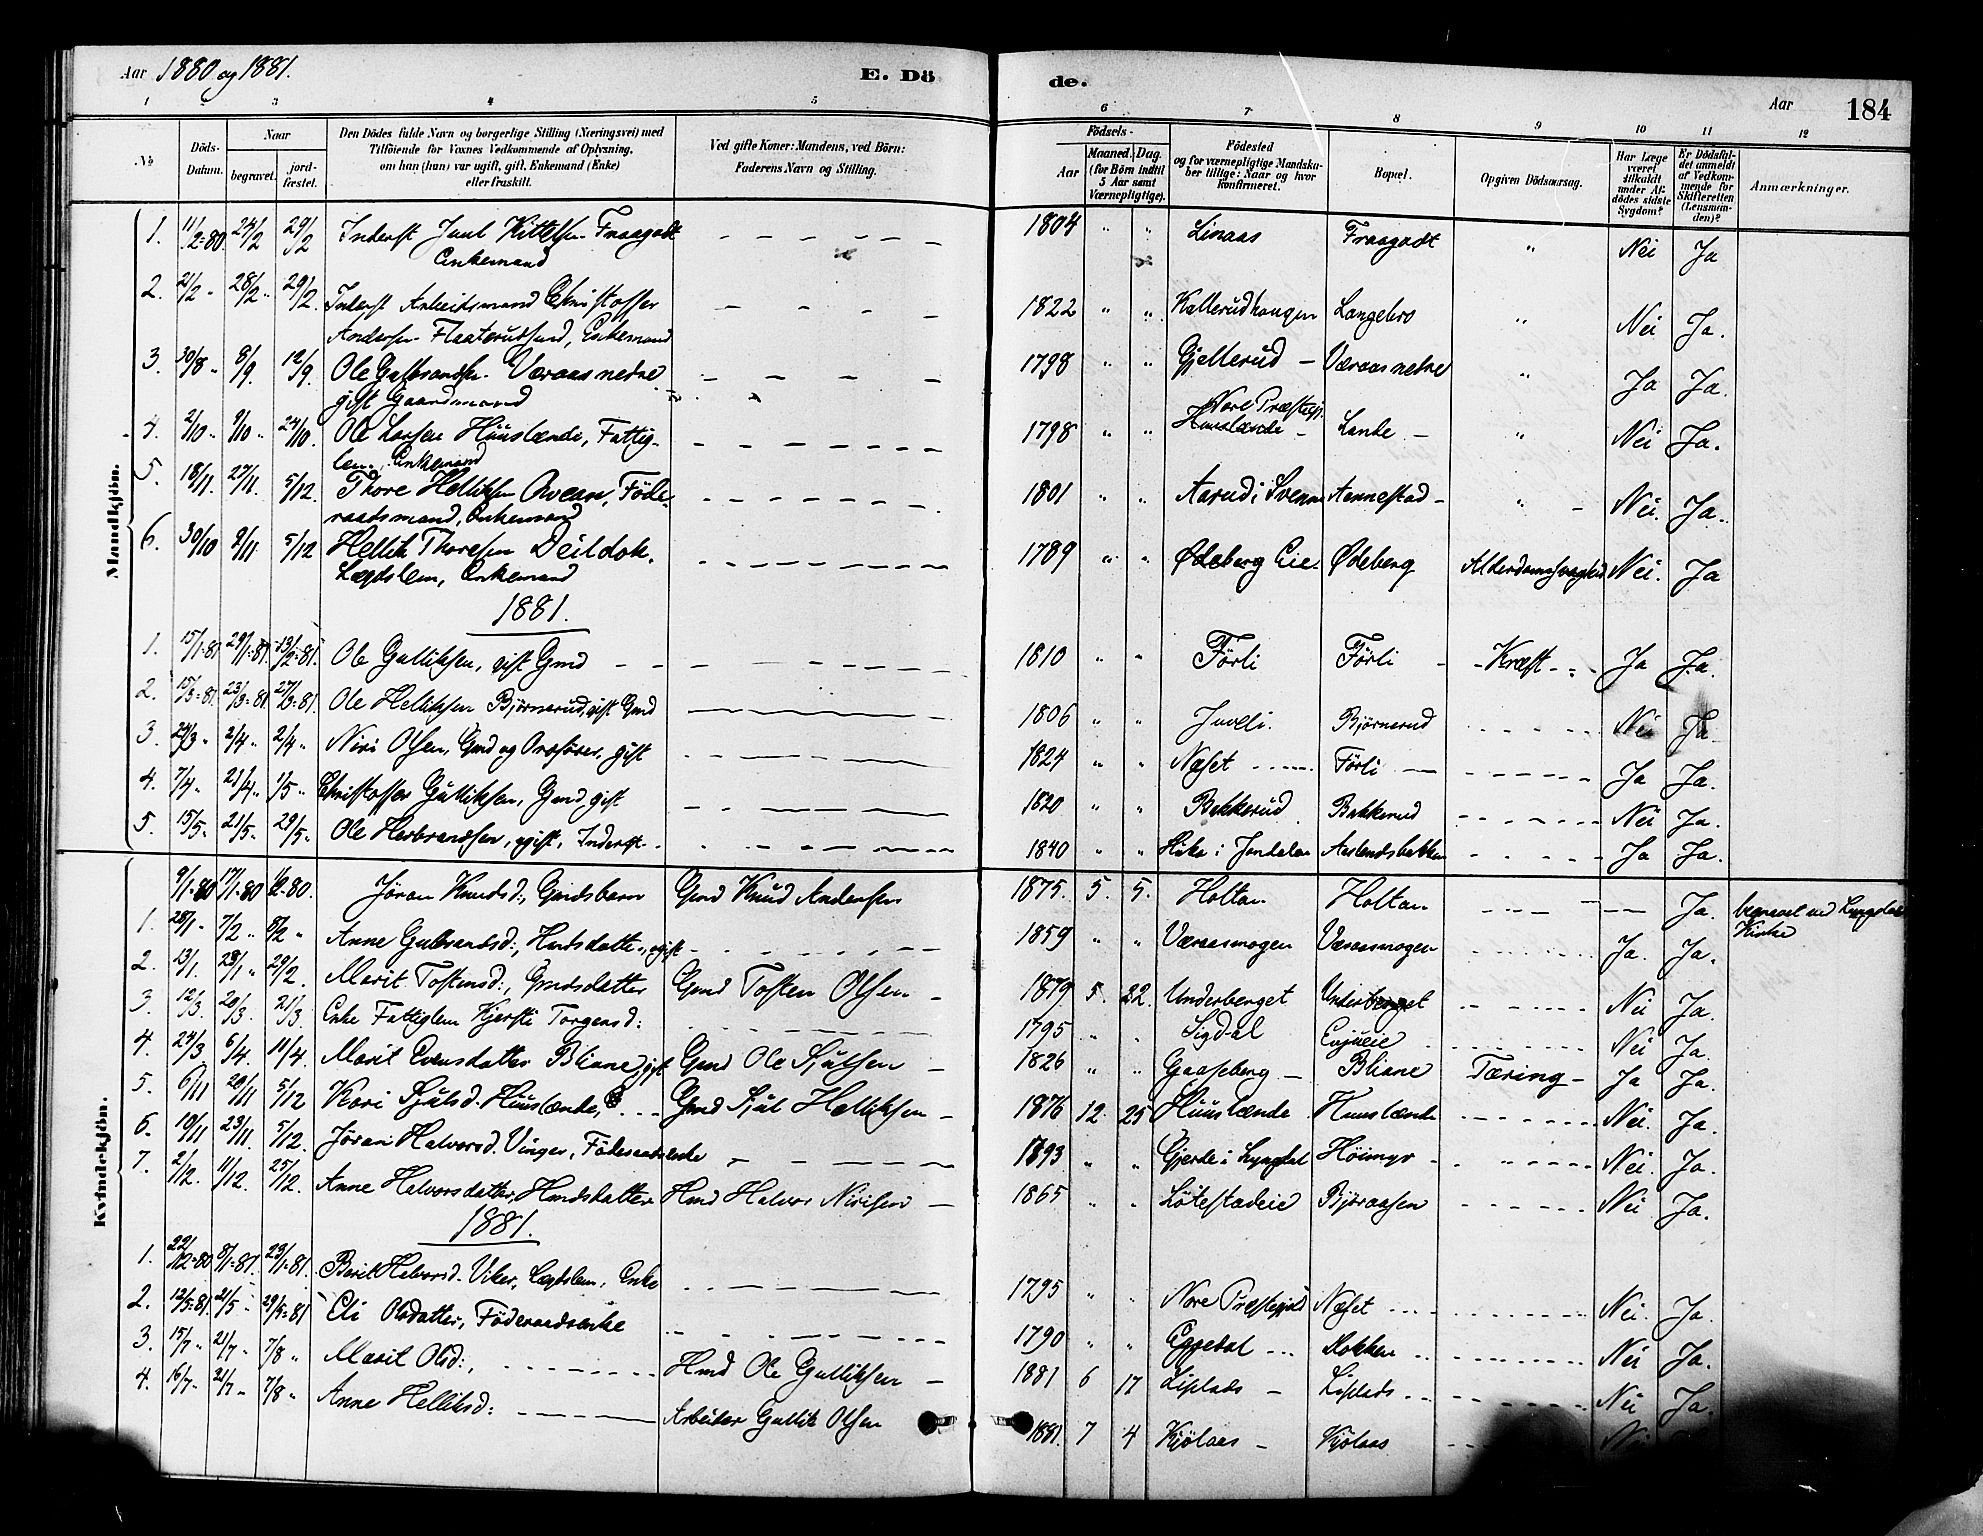 Aar 1880 og 1881. E. Dö de. Aar 184
1 3 4 5 6 7 8 9 10 11 12
No
Döds-Datum.
Naar
begravet.
jord-fæstet.
Den Dödes fulde Navn og borgerlige Stilling (Næringsvei) med
Tilföiende for Voxnes Vedkommende af Oplysning,
om han (hun) var ugift, gift, Enkemand (Enke)
eller fraskilt.
Ved gifte Koner: Mandens, ved Börn:
Faderens Navn og Stilling.
Födsels-
Aar
Maaned. Dag.
(for Börn indtil
5 Aar samt
Værnepligtige).
Födested
og for værnepligtige Mandska-
ber tillige: Naar og hvor
konfirmeret.
Bopæl.
Opgiven Dödsaarsag.
Har Læge
været
tilkaldt
under Af-
dödes sidste
Sygdom?
Er Dödsfal-
det anmeldt
af Vedkom-
mende for
Skifteretten
(Lensman-
den)?
Anmærkninger.
Mandkjön.
1. 11/2-80. 24/2 29/2 Inderst Juul Kittelsen Fraagodt 1804 " " Linaas Fraagodt " Nei Ja
Enkemand
2. 2/2 " 28/2 " 29/2. Inderst Arbeidsmand Christoffer 1822 " " Kallerudhaugen Langebro " Nei Ja.
Andersen Flaaterudsund, Enkemand
3. 30/8 " 8/9 12/9. Ole Gulbrandsen Væraas nedre 1798 " " Gjellerud – Væraas nedre " Ja Ja.
gift Gaardmand
4. 2/10 " 9/10 " 24/10. Ole Larsen Huuslænde, Fattig- 1798 " " Nore Præstegj. Huuslænde – Lande – " Nei Ja.
lem, Enkemand
5. 18/11. 27/11. 5/12. Thore Helliksen, Föde- 1801 " " Aarud i Svenne Aannestad – " Nei. Ja.
raadsmand, Enkemand
6. 30/10 9/11. 5/12 Hellik Thoresen Deildok. 1789 " " Ødeberg Eie. Ødeberg Alderdomssvaghed Nei. Ja
Lægdslem, Enkemand
1881.
1. 15/1-81 29/1-81. 13/2-81. Ole Gulliksen, gift Gmd 1810 " " Förli Förli – Kræft – Ja Ja.
2. 15/3-81. 23/3-81 27/3-81. Ole Helliksen Björnerud, gift Gmd 1806 " " Juveli Björnerud Nei Ja
3. 24/3 " 2/4 " 2/4 " Niri Olsen, Gmd og, gift 1824 " " Næset Förli Ja Ja.
4. 7/4 " 21/4 " 1/5 " Christoffer Gulliksen, Gmd, gift 1820 " " Bakkerud Bakkerud Nei Ja.
5. 15/5 " 21/5 " 29/5 " Ole Herbrandsen, ugift, Inderst 1840 " " i Jondalen Aaslandsbakken Ja Ja.
Kvindekjön.
9/1-80 17/1-80 1/2-80. Jöran Knudsd:, Gmdsbarn Gmd Knud Andersen 1875. 5. 5. Holtan Holtan Ja. begravet ved Lyngdals
Kirke
1. 28/1 " 7/2 " 8/2 " Anne Gulbrandsd:, Hmdsdatter, ugift 1859 " " Væraasmogen Væraasmogen Ja. Ja.
2. 13/1. 28/1 " 29/2. Marit Tostensd:, Gmdsdatter Gmd Tosten Olsen – 1879 5. 22. Underberget Underberget Nei Ja.
3. 12/3. 20/3. 21/3. Enke Fattiglem Kjersti Torgersd: 1795 " " Sigdal Nei Ja.
4. 24/3 6/4. 11/4. Marit Evensdatter Bliane, gift Gmd Ole Sjulsen – 1826 " " Gaaseberg – Bliane Tæring – Ja Ja.
5. 6/11 20/11 5/12 Kari Sjulsd. Huuslænde, Gmd Sjul Helliksen – 1876 12. 25 Huuslænde Huuslænde Nei. Ja.
6. 19/11 23/11. 5/12. Jöran Halvorsd. Vinger, Föderaadsenke 1893 " " Gjerde i Lyngdal Höimyr Nei. Ja.
7. 2/12. 11/12. 25/12. Anne Halvorsdatter, Hmdsdatter Hmd Halvor Nirisen – 1865 " " Lötestadeie Björaasen Nei Ja.
1881.
1. 22/12-80 8/1-81. 23/1-81. Berit Halvorsd. Viker, Lægdslem, Enke 1795 " " Nore Præstegjeld Næset Nei. Ja.
2. 12/5-81. 21/5 " 29/5-81 Eli Olsdatter, Föderaadsenke 1790 " " Eggedal Dokken Nei Ja.
3. 15/7 " 21/7 " 7/8 " Marit Olsd:, Hmd Ole Gulliksen – 1881 6 17 Liplads – Liplads Nei Ja.
4. 16/7 " 21/7 " 7/8 " Anne Helliksd: Arbeider Gullik Olsen 1881. 7 4 Kjölaas – Kjölaas Nei